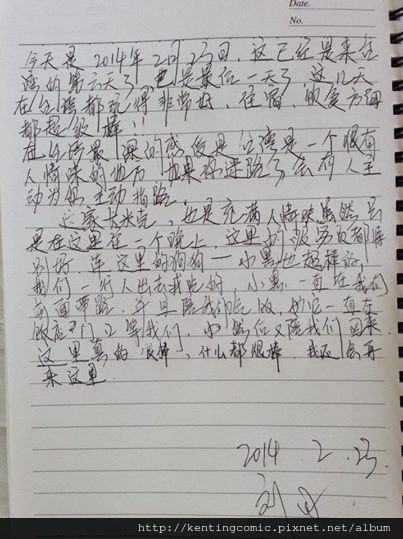 Date.
No.
今天是2014年2月23日,这已经是来台
湾的第六天了 也是最后一天了 这几天
在台湾都玩得非常好,住宿,饮食方面
都超级棒!!
在台湾最深的感受是台湾是一个很有
人情味的地方 如果你迷路了会有人主
动为你主动指路.
这家卡米克,也是充满人情味虽然只
是在这里住一个晚上,这里的服务员都特
别好.连这里的狗狗——小黑也超棒的
我们一行人出去找吃的,小黑一直在我们
前面带路.并且陪我们吃饭,它一直在
饭店门口等我们,小然后又陪我们回来
这里真的很棒,什么都很棒,我还会再
来这里.
2014.2.23.
http://kentingcomic.pixnet.net/album